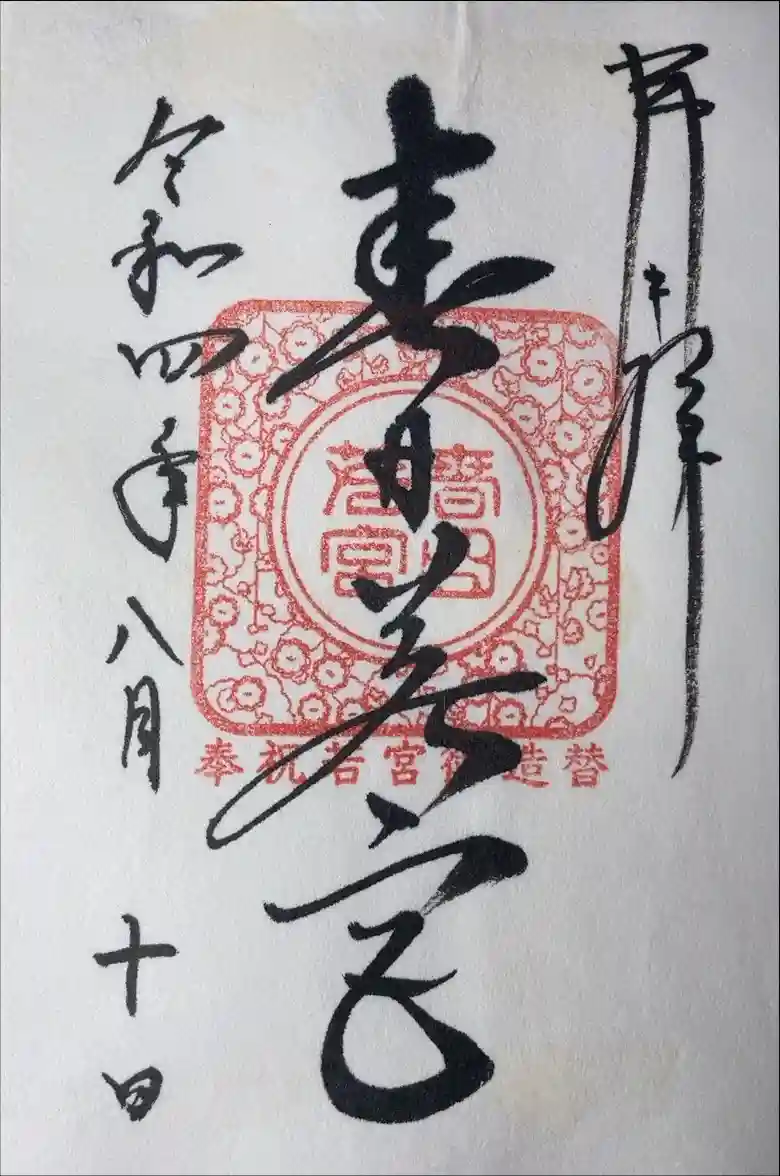 奉拝
春日若宮
令和四年八月十日
春日
若宮
奉祝若宮御造替